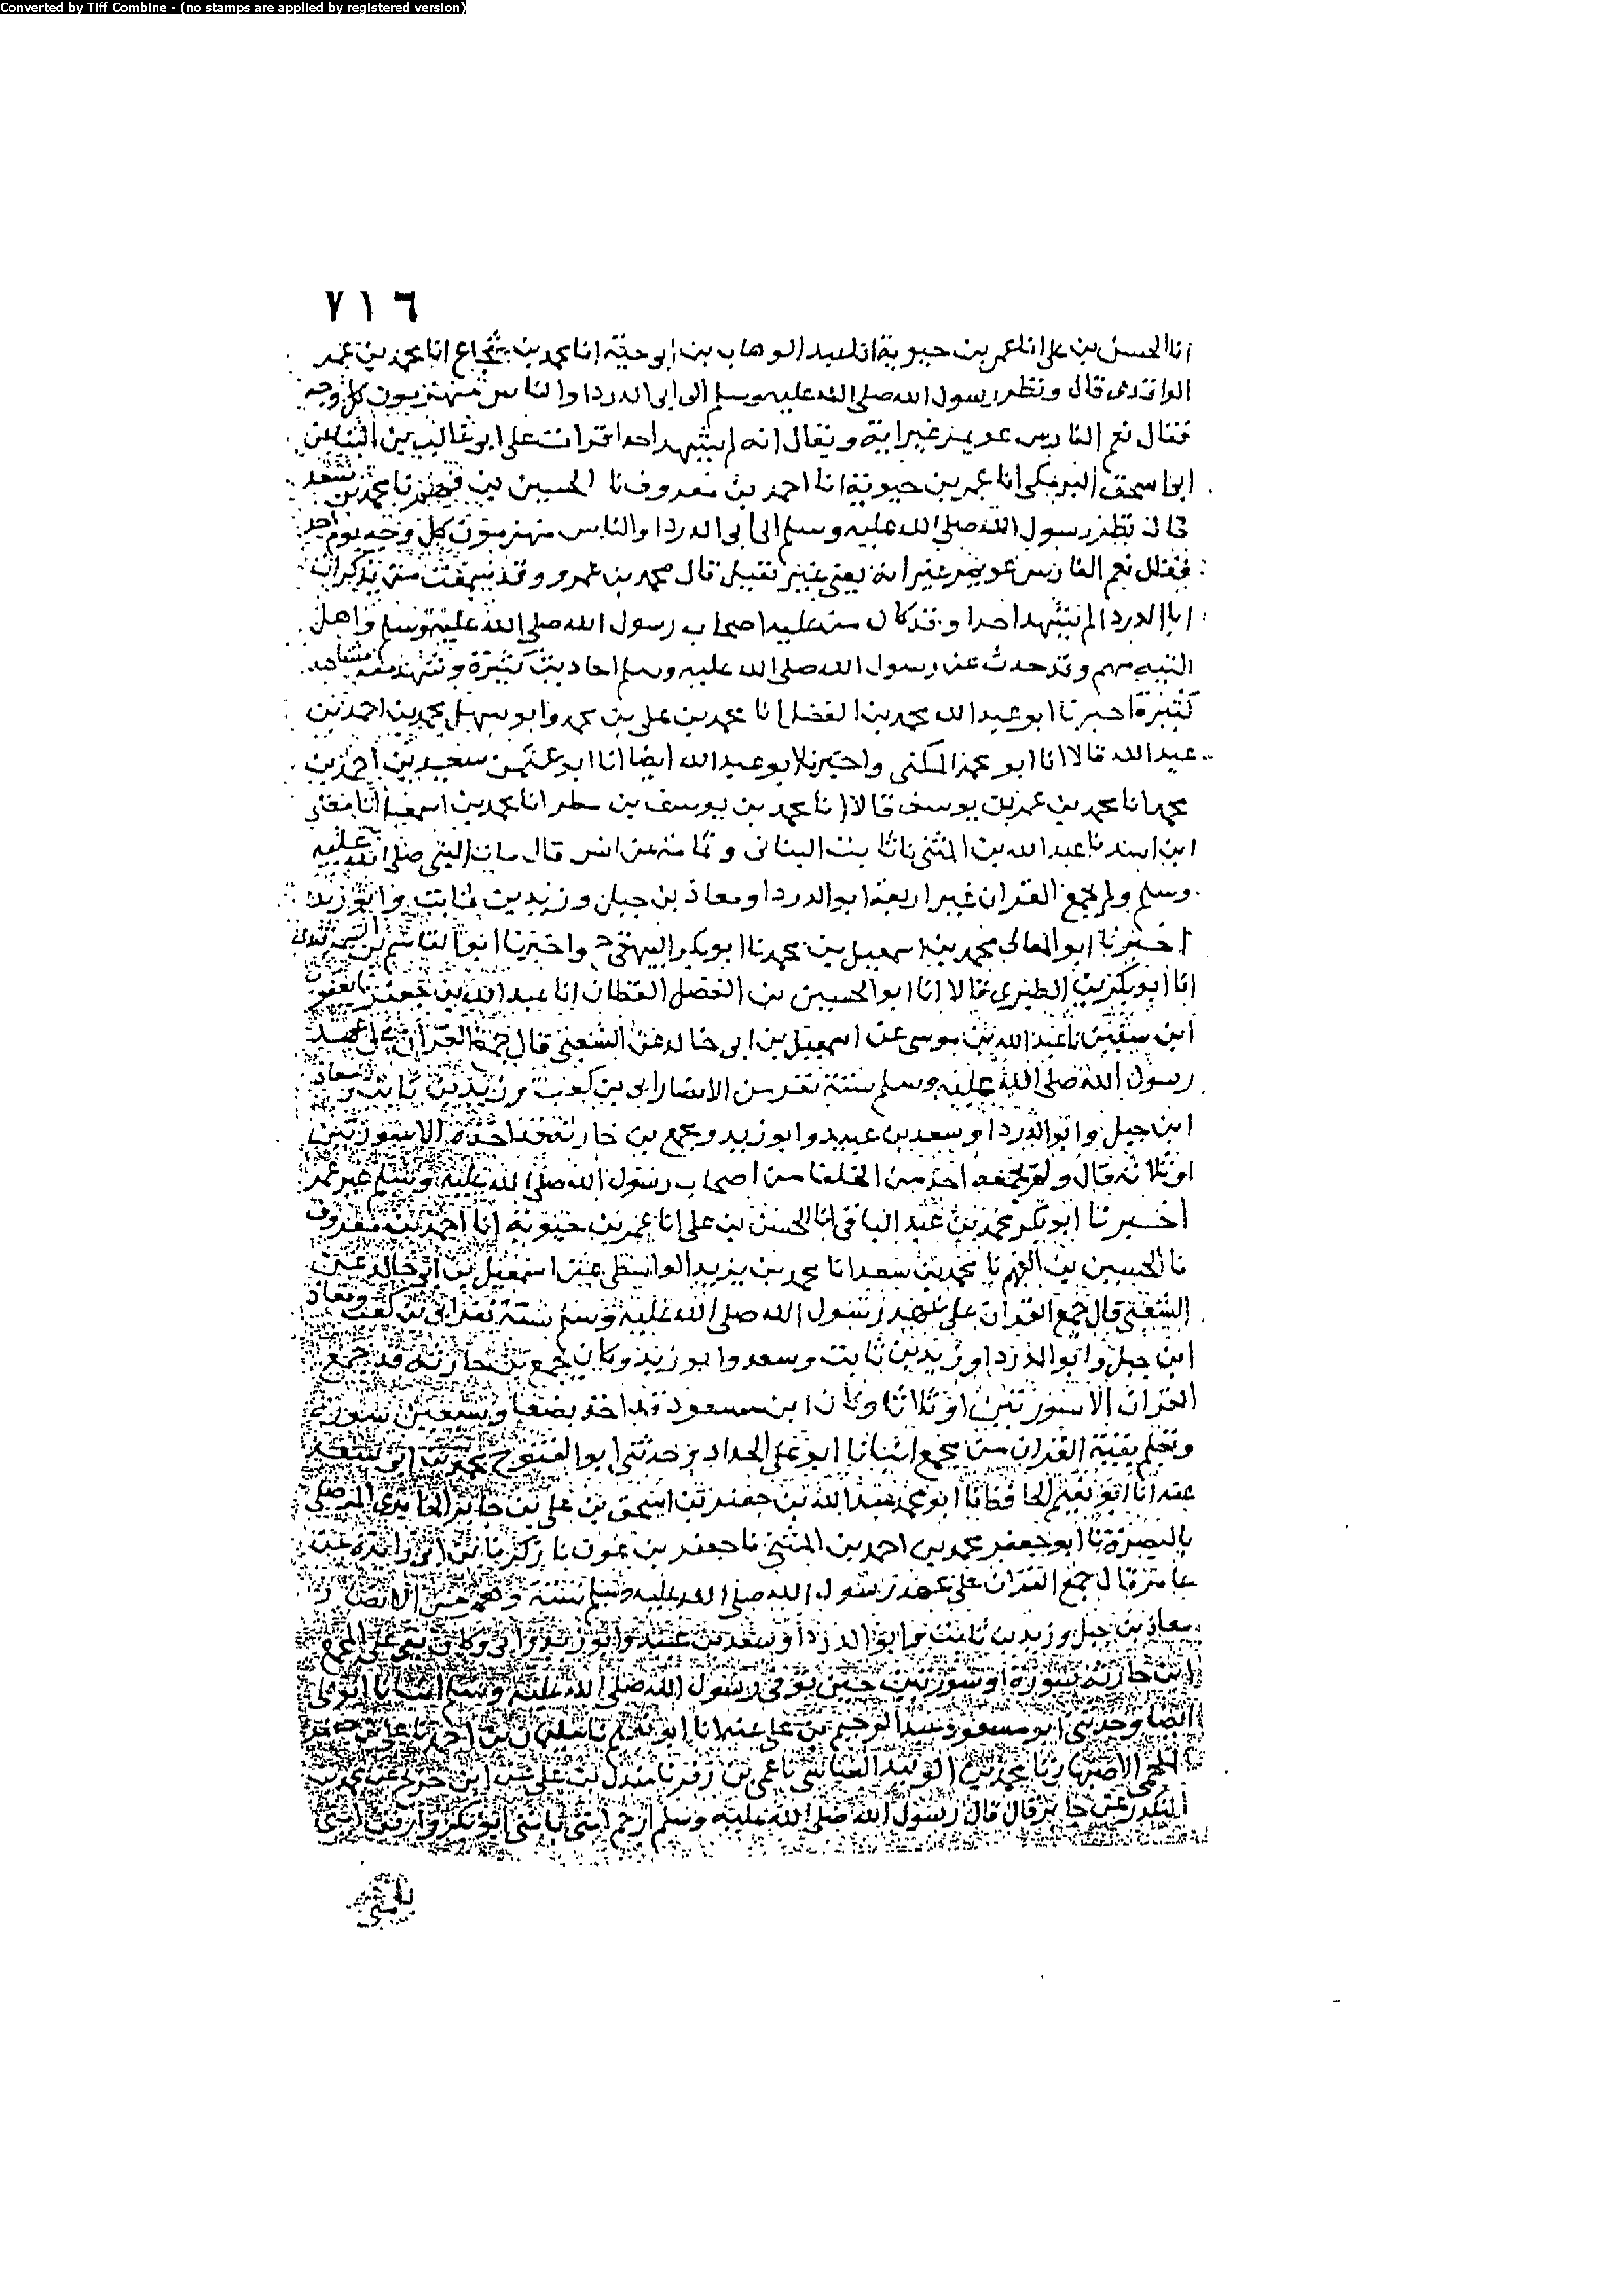 Converted by Tiff Combine - (no stamps are applied by registered version)
٧١٦
انا الحسن بن على انا عمر بن حيوية انا عبد الوهاب بن ابى حية انا محمد بن شجاع انا محمد بن عمر
الواقدى قال ونظر رسول الله صلى الله عليه وسلم الى ابى الدردا والناس منهزمون كل وجه
فقال نعم الفارس عويمر غير انه ويقال انه لم يشهد احدا قرات على ابو غالب بن البنا عن
ابى اسحق البرمكى انا عمر بن حيوية انا احمد بن معروف نا الحسين بن نا محمد بن سعد
قال نظر رسول الله صلى الله عليه وسلم الى ابى الدردا والناس منهزمون كل وجه يوم احد
فقال نعم الفارس عويمر غير انه يعنى غير ثقيل قال محمد بن عمرو وقد سمعت من يذكر ان
ابا الدردا لم يشهد احدا وقد كان من عليه اصحاب رسول الله صلى الله عليه وسلم واهل
النبيه منهم وقد حدث عن رسول الله صلى الله عليه وسلم احاديث كثيرة وشهد معه مشاهد
كثيرة اخبرنا ابو عبد الله محمد بن الفضل انا محمد بن على بن محمد وابو سهل محمد بن احمد بن
عبد الله قالا انا ابو محمد المكى واخبرنا ابو عبد الله ايضا انا ابو عثمن سعيد بن احمد بن
محمد انا محمد بن عمر بن يوسف قالا انا محمد بن يوسف بن مطر انا محمد بن اسمعيل انا معلى
ابن اسد نا عبد الله بن المثنى نا ثابت البنانى وثمامة عن انس قال مات النبى صلى الله عليه
وسلم ولم يجمع القران غير اربعة ابو الدردا ومعاذ بن جبل وزيد بن ثابت وابو زيد
اخبرنا ابو المعالى محمد بن اسمعيل بن محمد نا ابو بكر البيهقى ح واخبرنا ابو القاسم بن السمرقندى
انا ابو بكر بن الطبرى قالا انا ابو الحسين بن الفضل القطان انا عبد الله بن جعفر نا يعقوب
ابن سفين نا عبد الله بن موسى عن اسمعيل بن ابى خالد عن الشعبى قال جمع القران على عهد
رسول الله صلى الله عليه وسلم ستة نفر من الانصار ابى بن كعب وزيد بن ثابت ومعاذ
ابن جبل وابو الدردا وسعد بن عبيد وابو زيد ومجمع بن جارية الا سورتين
او ثلاثة قال ولم يجمعه احد من الخلفا من اصحاب رسول الله صلى الله عليه وسلم غير عمر
اخبرنا ابو بكر محمد بن عبد الباقى انا الحسن بن على انا عمر بن حيوية انا احمد بن معروف
نا الحسين بن الفهم نا محمد بن سعد انا محمد بن يزيد الواسطى عن اسمعيل بن ابى خالد عن
الشعبى قال جمع القران على عهد رسول الله صلى الله عليه وسلم ستة نفر ابى بن كعب ومعاذ
ابن جبل وابو الدردا وزيد بن ثابت وسعد وابو زيد وكان مجمع بن جارية قد جمع
القران الا سورتين او ثلاثا وكان ابن مسعود قد اخذ بضعا وسبعين سورة
وتعلم بقية القران من مجمع انبانا ابو على الحداد وحدثنى ابو الفتوح محمد بن ابى سعد
عنه انا ابو نعيم الحافظ نا ابو محمد عبد الله بن جعفر بن اسحق بن على بن جابر الجابرى الموصلى
بالبصرة نا ابو جعفر محمد بن احمد بن المثنى نا جعفر بن عون نا زكريا بن ابى زايدة عن
عامر قال جمع القران على عهد رسول الله صلى الله عليه وسلم ستة وهم من الانصار
معاذ بن جبل وزيد بن ثابت وابو الدردا وسعد بن عبيد وابو زيد وابى وكان بقى على المجمع
ابن جارية سورة او سورتين حين توفى رسول الله صلى الله عليه وسلم انبانا ابو على
ايضا وحدثنى ابو مسعود عبد الرحيم بن على عنه انا ابو نعيم نا سليمان بن احمد نا على بن جعفر
الاصبهانى نا محمد بن الوليد العباسى نا عمى بن زفر نا مندل بن على عن ابن جريج عن محمد بن
المنكدر عن جابر قال قال رسول الله صلى الله عليه وسلم ارحم امتى بامتى ابو بكر وارفق امتى